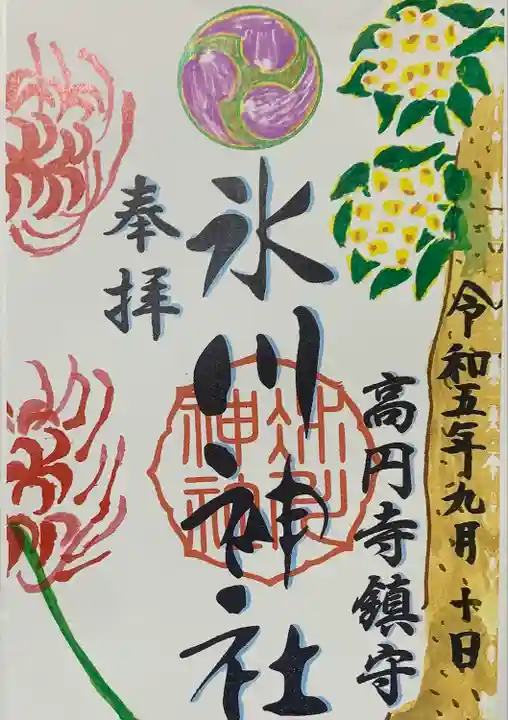 令和五年九月十日
高円寺鎮守
氷川神社
奉拝